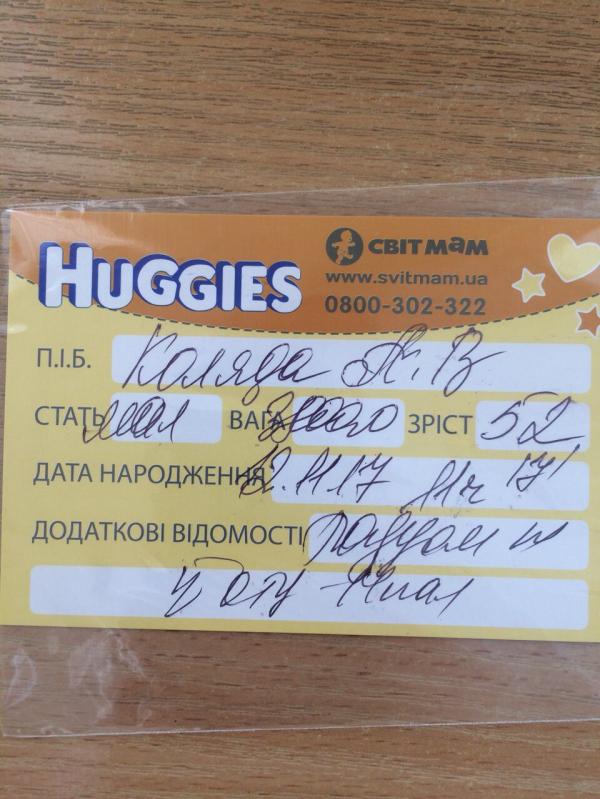 HUGGIES
СВІТ МАМ
www.svitmam.ua
0800-302-322
П.І.Б. Коляда Н. В
СТАТЬ мал ВАГА ЗРІСТ 52
ДАТА НАРОДЖЕННЯ 12.11.17 11ч 17'
ДОДАТКОВІ ВІДОМОСТІ